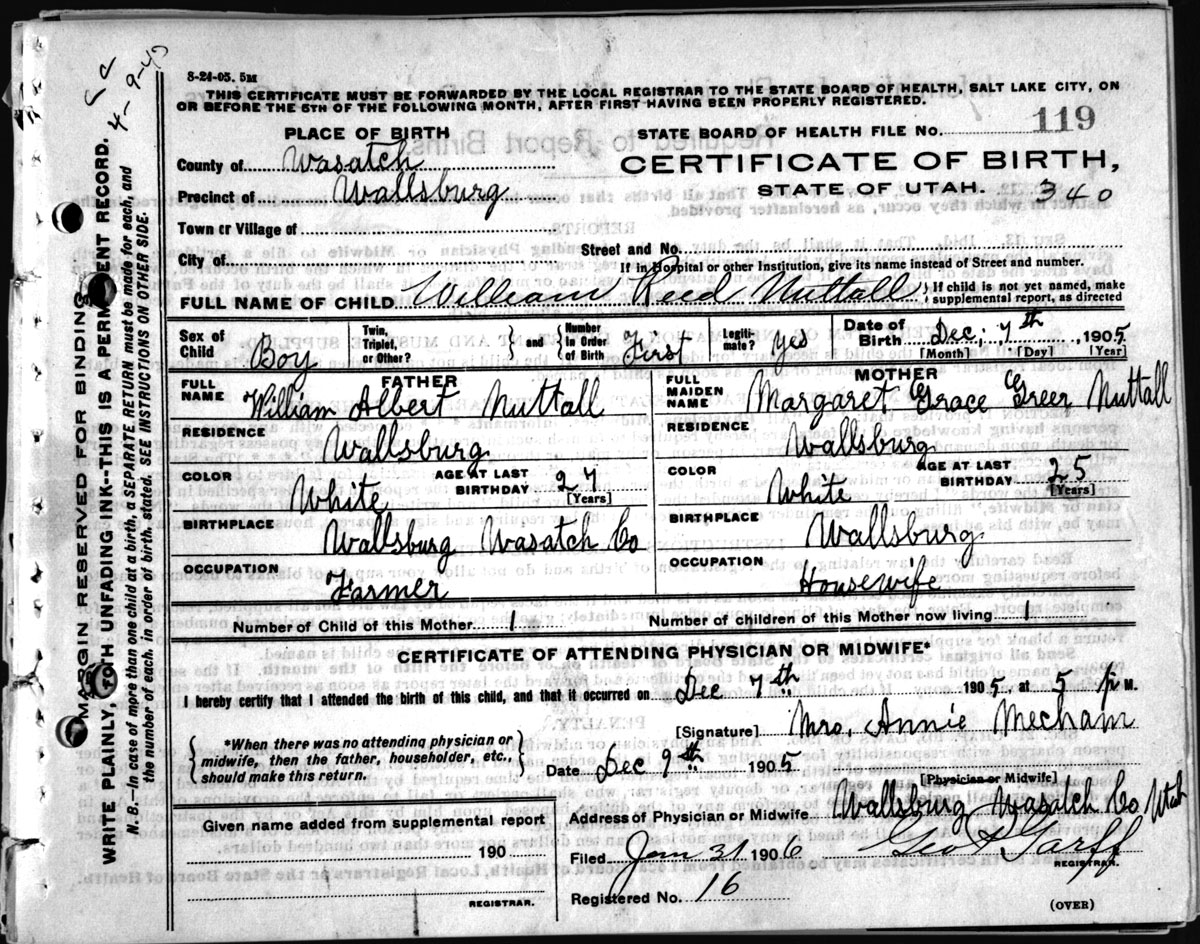 8-24-05. 5M
THIS CERTIFICATE MUST BE FORWARDED BY THE LOCAL REGISTRAR TO THE STATE BOARD OF HEALTH, SALT LAKE CITY, ON
OR BEFORE THE 5TH OF THE FOLLOWING MONTH, AFTER FIRST HAVING BEEN PROPERLY REGISTERED.
PLACE OF BIRTH
STATE BOARD OF HEALTH FILE No. 119
County of Wasatch
CERTIFICATE OF BIRTH,
Precinct of Wallsburg
STATE OF UTAH. 340
Town or Village of
City of
Street and No.
If in Hospital or other Institution, give its name instead of Street and number.
FULL NAME OF CHILD William Reed Nuttall { If child is not yet named, make supplemental report, as directed
Sex of Child Boy Twin, Triplet, or Other? } and { Number in Order of Birth First Legiti-mate? yes Date of Birth Dec, 7th, 1905
[Month] [Day] [Year]
FATHER
FULL NAME William Albert Nuttall
MOTHER
FULL MAIDEN NAME Margaret Grace Greer Nuttall
RESIDENCE Wallsburg
RESIDENCE Wallsburg
COLOR White AGE AT LAST BIRTHDAY 27 [Years]
COLOR White AGE AT LAST BIRTHDAY 25 [Years]
BIRTHPLACE Wallsburg Wasatch Co
BIRTHPLACE Wallsburg
OCCUPATION Farmer
OCCUPATION Housewife
Number of Child of this Mother 1
Number of children of this Mother now living 1
CERTIFICATE OF ATTENDING PHYSICIAN OR MIDWIFE*
I hereby certify that I attended the birth of this child, and that it occurred on Dec 7th 1905, at 5 P. M.
[Signature] Mrs, Annie Mecham
{ *When there was no attending physician or midwife, then the father, householder, etc., should make this return. }
Date Dec 9th 1905
[Physician or Midwife]
Given name added from supplemental report
190
REGISTRAR.
Address of Physician or Midwife Wallsburg Wasatch Co Utah
Filed Jan 31 1906 Geo
REGISTRAR.
Registered No. 16
(OVER)
MARGIN RESERVED FOR BINDING
WRITE PLAINLY, WITH UNFADING INK--THIS IS A PERMANENT RECORD.
N. B.--In case of more than one child at a birth, a SEPARATE RETURN must be made for each, and
the number of each, in order of birth, stated. SEE INSTRUCTIONS ON OTHER SIDE.
4-9-43